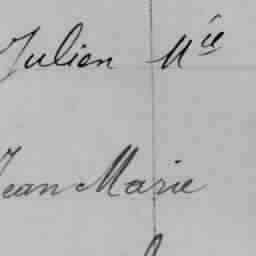 Julien Mie
Jean Marie